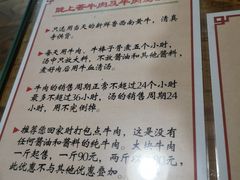 晚上香牛肉及牛腩汤
只选用当天的新鲜鲁西南黄牛,清真
寺供货。
每天用牛肉、牛棒子骨煮五个小时,
汤中只放大料,不放酱油和其他酱料,
煮好肉后用牛血清汤。
牛肉的销售周期正常不超过24个小时
最多不超过36小时,汤的销售周期24
小时,用不完倒掉。
推荐您回家时打包点牛肉,这是没有
任何酱油和酱料的炖牛肉。大块牛肉
一斤起售,一斤90元,两斤
此优惠不与其他优惠叠加。